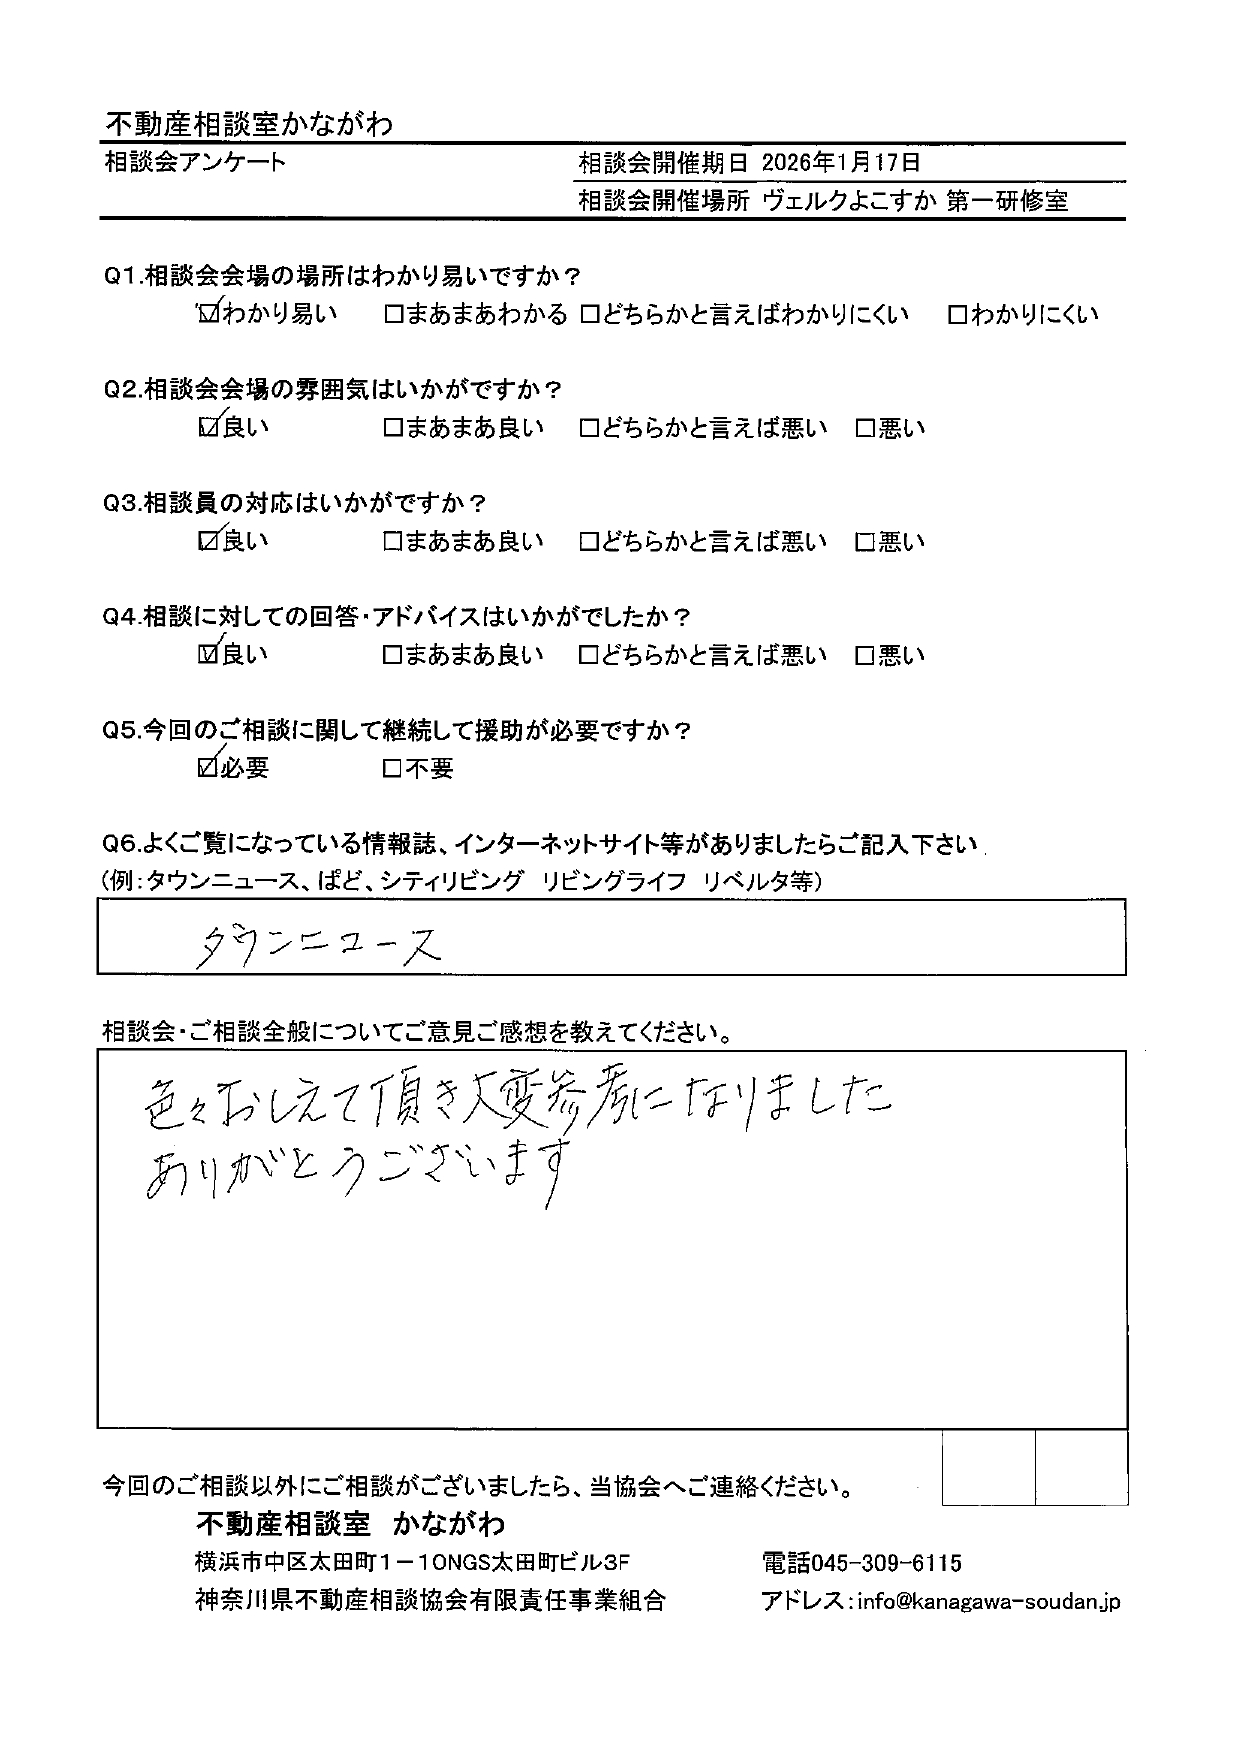 不動産相談室かながわ
相談会アンケート
相談会開催期日 2026年1月17日
相談会開催場所 ヴェルクよこすか 第一研修室
Q1.相談会会場の場所はわかり易いですか？
☑わかり易い □まあまあわかる □どちらかと言えばわかりにくい □わかりにくい
Q2.相談会会場の雰囲気はいかがですか？
☑良い □まあまあ良い □どちらかと言えば悪い □悪い
Q3.相談員の対応はいかがですか？
☑良い □まあまあ良い □どちらかと言えば悪い □悪い
Q4.相談に対しての回答・アドバイスはいかがでしたか？
☑良い □まあまあ良い □どちらかと言えば悪い □悪い
Q5.今回のご相談に関して継続して援助が必要ですか？
☑必要 □不要
Q6.よくご覧になっている情報誌、インターネットサイト等がありましたらご記入下さい
（例：タウンニュース、ぱど、シティリビング　リビングライフ　リベルタ等）
タウンニュース
相談会・ご相談全般についてご意見ご感想を教えてください。
色々おしえて頂き大変参考になりました
ありがとうございます
今回のご相談以外にご相談がございましたら、当協会へご連絡ください。
不動産相談室　かながわ
横浜市中区太田町1－10NGS太田町ビル3F
電話045-309-6115
神奈川県不動産相談協会有限責任事業組合
アドレス：info@kanagawa-soudan.jp